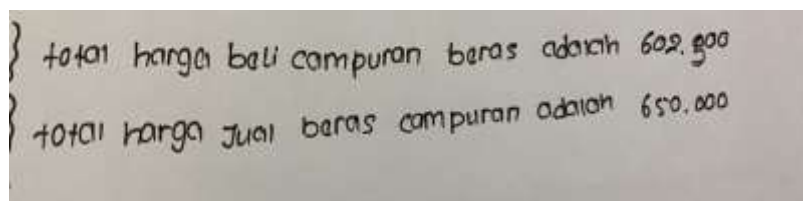 total harga beli campuran beras adalah 602.500
total harga Jual beras campuran adalah 650.000